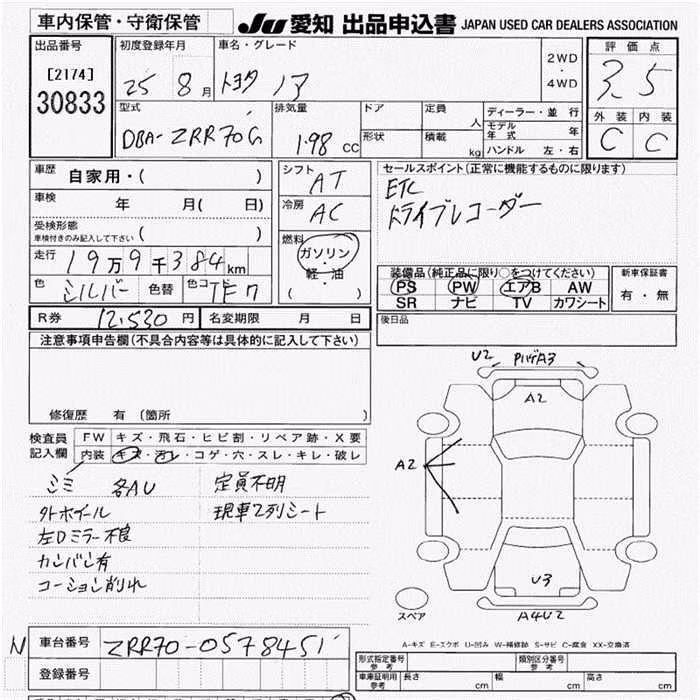 車内保管・守衛保管 JU 愛知 出品申込書 JAPAN USED CAR DEALERS ASSOCIATION
出品番号 初度登録年月 車名・グレード 2WD・4WD 評価点
[2174] 25 8月 トヨタ ノア 3.5
30833 型式 排気量 ドア 定員 人 ディーラー・並行 外装 内装
DBA-ZRR70G 1.98 CC 形状 積載 kg モデル年式 年 C C
ハンドル 左・右
車歴 自家用・( ) シフト AT セールスポイント(正常に機能するものに限ります)
車検 年 月( 日) 冷房 AC ETC
受検形態 ( ) ドライブレコーダー
車検付きのみ記入して下さい
燃料 ガソリン・軽・油 ( )
走行 19万9千384km 装備品(純正品に限り○をつけてください) 新車保証書
色 シルバー 色替 色コード 1F7 PS PW エアB AW 有・無
SR ナビ TV カワシート
R券 12,530円 名変期限 月 日 後日品
注意事項申告欄(不具合内容等は具体的に記入して下さい)
修復歴 有 (箇所 )
検査員記入欄 FW キズ・飛石・ヒビ割・リペア跡・X要
内装 キズ・汚レ・コゲ・穴・スレ・キレ・破レ
シミ 各AU 定員不明
外ホイール 現車2列シート
左Dミラー不良
カンバン有
コーション削れ
U2 PバゲA3
A2
A2
U3
スペア A4U2
A-キズ E-エクボ U-凹み W-補修跡 S-サビ C-腐食 XX-交換済
N 車台番号 ZRR70-0578451
登録番号
形式指定番号 参考 類別区分番号 参考
車庫証明用 参考 長さ cm 幅 cm 高さ cm